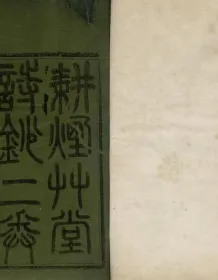 耕煙艸堂
詩鈔二卷